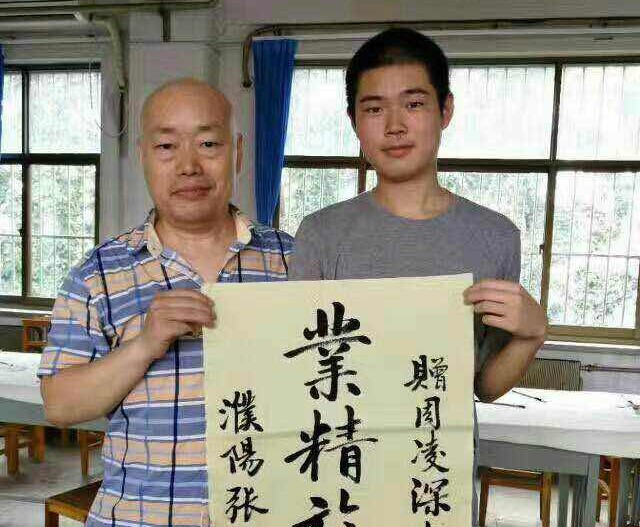 贈周凌深
業精於
濮陽張